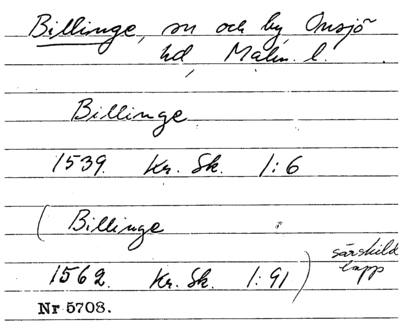 Billinge, sn och by, Onsjö
hd, Malm. l.
Billinge
1539. Kr. Sk. 1:6
(Billinge
1562. Kr. Sk. 1:91) särskild
lapp
Nr 5708.